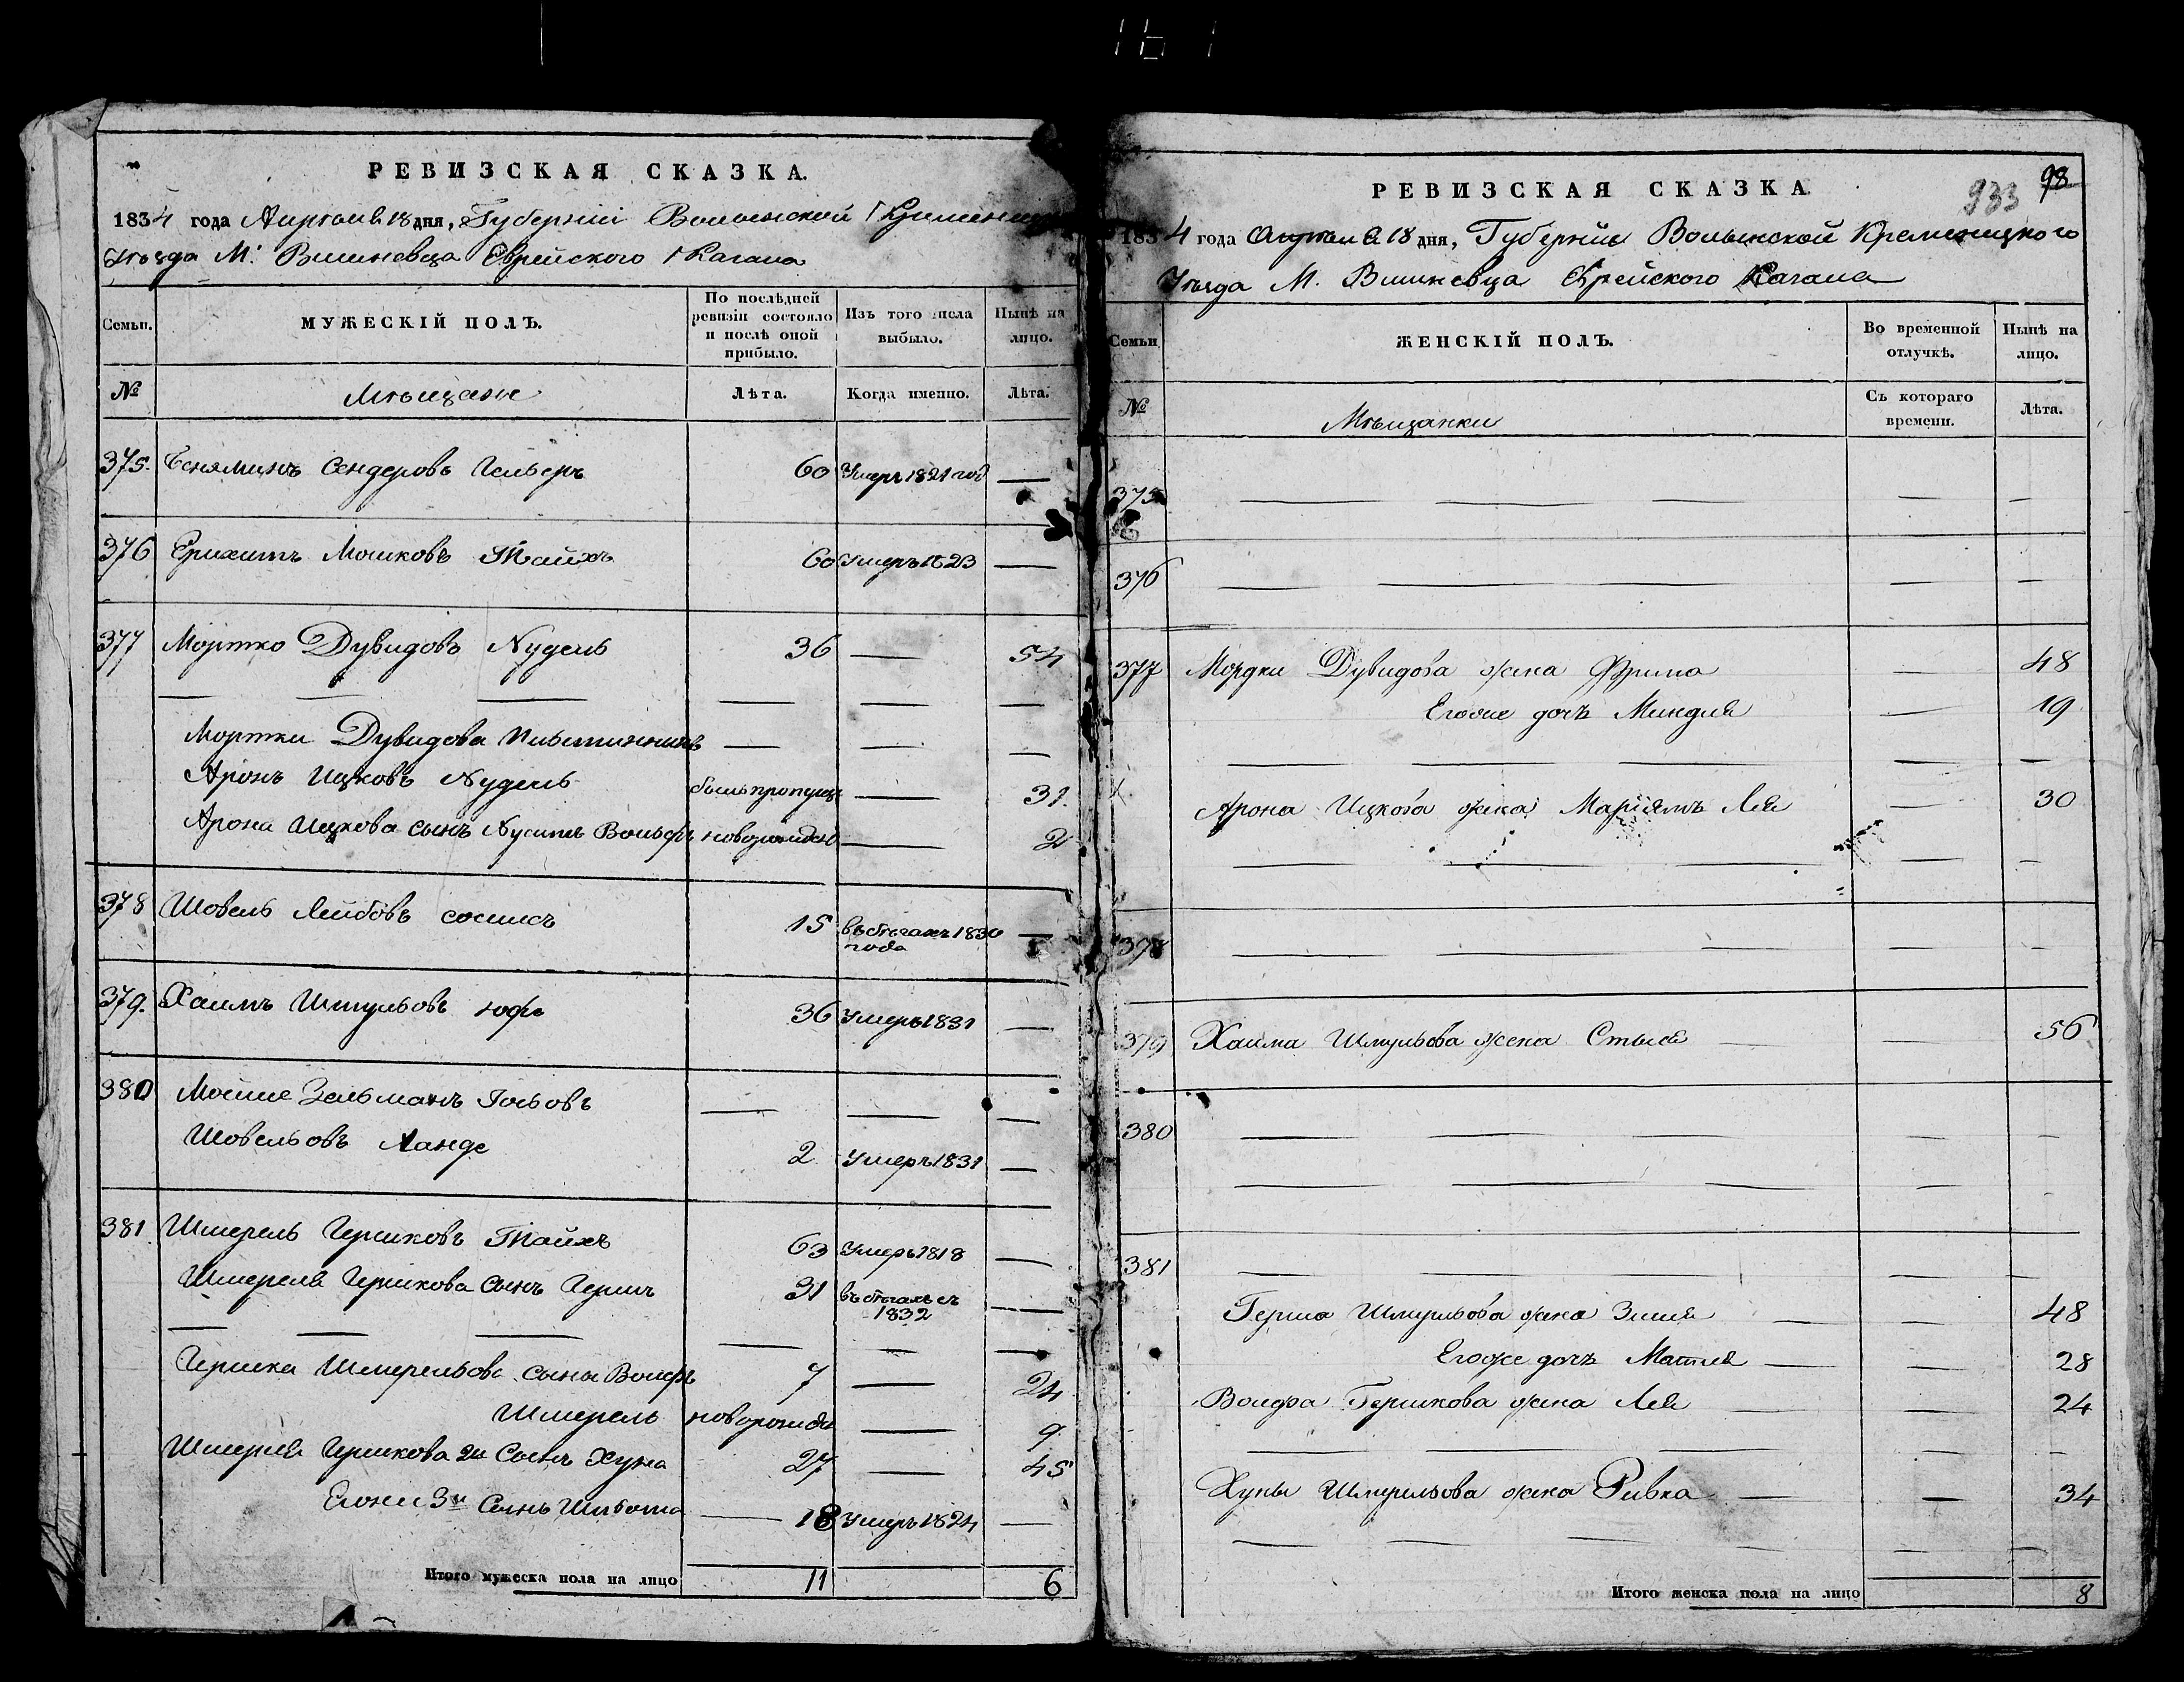 РЕВИЗСКАЯ СКАЗКА.
1834 года Апреля 18 дня, Губерніи Волынской
Уѣзда М. Вишневца Еврейского Кагала
Семьи.
МУЖЕСКІЙ ПОЛЪ.
По послѣдней ревизіи состояло и послѣ оной прибыло.
Изъ того числа выбыло.
Нынѣ на лицо.
№
Мѣщане
Лѣта.
Когда именно.
Лѣта.
375. Беняминъ Сендеровъ 60 Умеръ 1821 год —
376 Мошковъ 60 Умеръ 1823 —
377 Мортко Дувидовъ Нудель 36 — 54
Мортки Дувидова — — —
Аронъ Ицковъ Нудель былъ пропущ — 31.
Арона Ицкова сынъ Вольфъ новорожден — 2
378 Шовель Лейбовъ 15 въ бѣгахъ 1830 года —
379. Хаимъ Шмульовъ Юфе 36 Умеръ 1831 —
380 Мошие Зельманъ — — —
Шовельовъ Ланде 2 Умеръ 1831 —
381 Шмерель Гершковъ Тайхъ 63 Умеръ 1818 —
Шмереля Гершкова сынъ Гершъ 31 въ бѣгахъ съ 1832 —
Гершка Шмерельова сыны Вольфъ 7 — 24
Шмерель новорожден — 9
Шмереля Гершкова 2й Сынъ Хуна 27 — 45
Егоже 3й Сынъ 18 Умеръ 1824 —
Итого мужеска пола на лицо 11 6
98
933
РЕВИЗСКАЯ СКАЗКА
1834 года Апреля 18 дня, Губерніи Волынской Кременецкого
Уѣзда М. Вишневца Еврейского Кагала
Семьи
ЖЕНСКІЙ ПОЛЪ.
Во временной отлучкѣ.
Нынѣ на лицо.
№
Мѣщанки
Съ котораго времени.
Лѣта.
375 — — — — —
376 — — — —
377 Мордки Дувидова жена Фрима — 48
Егоже дочь Миндля — 19
Арона Ицкова жена Маріямъ Лея — 30
378 — — — —
379 Хаима Шмульова жена Стыся — 56
380 — — — — —
381 — — — — —
Герша Шмерльова жена Зися — 48
Егоже дочь Матля — 28
Волфа Гершкова жена Лея — 24
Хуны Шмерльова жена Ривка — 34
Итого женска пола на лицо 8